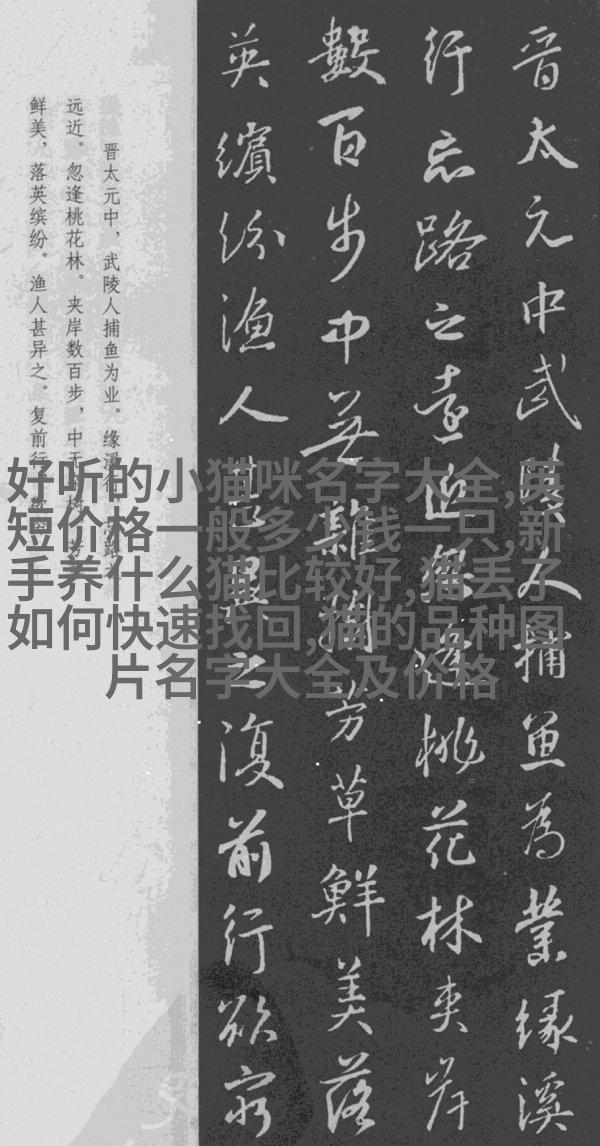 晋太元中武陵人捕魚為業緣溪
行忘路之遠近忽逢桃花林夾岸
數百步中無雜樹芳草鮮美落
英繽紛漁人甚異之復前行欲窮
晋太元中，武陵人捕鱼为业。缘溪行，
远近。忽逢桃花林。夹岸数百步，中无
鲜美，落英缤纷。渔人甚异之。复前行
好听的小猫咪名字大全,英
短价格一般多少钱一只,新
手养什么猫比较好,猫丢了
如何快速找回,猫的品种图
片名字大全及价格